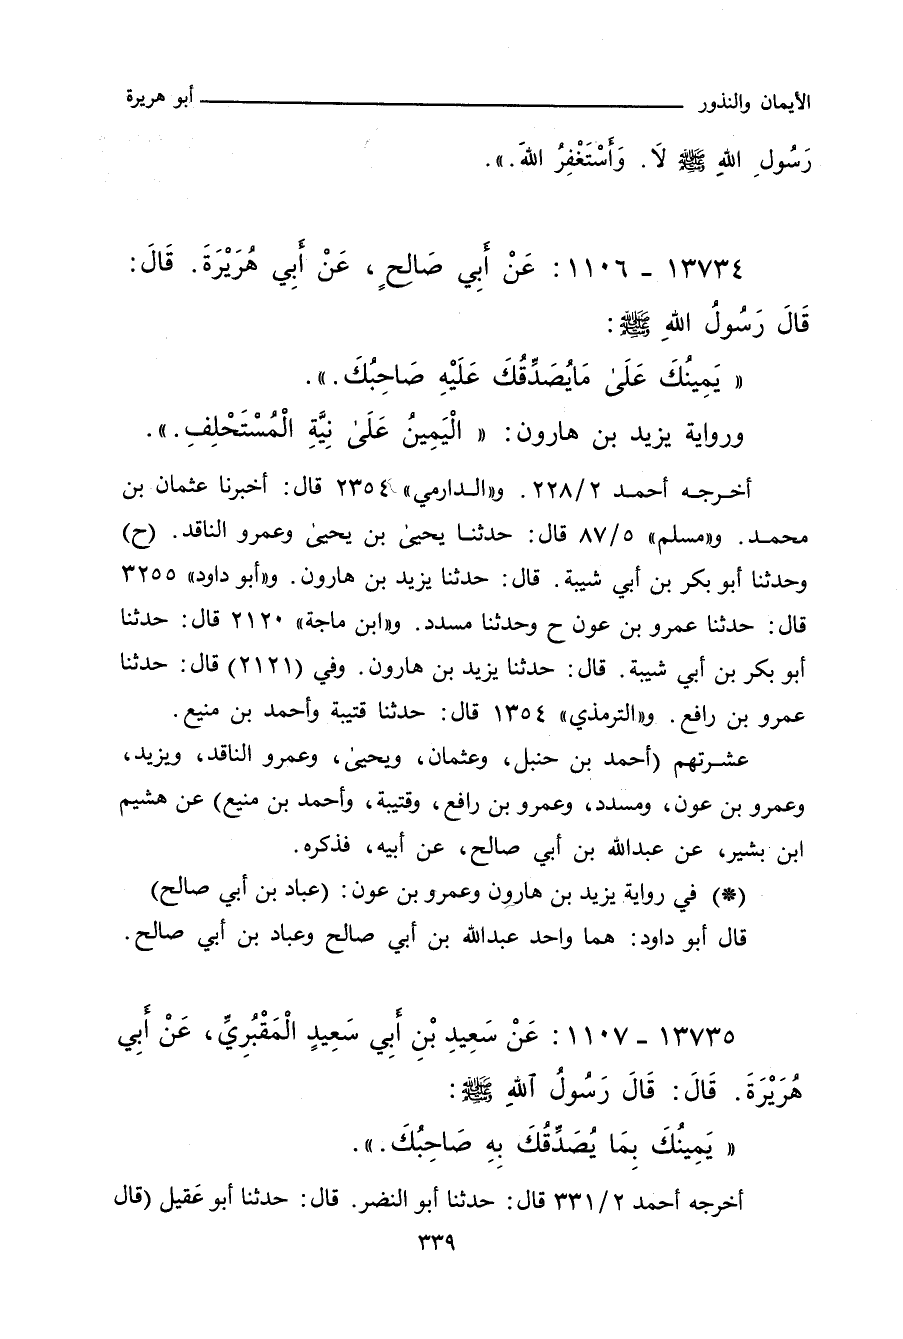 الأيمان والنذور ـــــــــــــــــــــــــ أبو هريرة
رَسُولِ اللهِ ﷺ لَا. وَأَسْتَغْفِرُ اللهَ.».
١٣٧٣٤ - ١١٠٦: عَنْ أَبِي صَالِحٍ، عَنْ أَبِي هُرَيْرَةَ. قَالَ:
قَالَ رَسُولُ اللهِ ﷺ:
« يَمِينُكَ عَلَىٰ مَايُصَدِّقُكَ عَلَيْهِ صَاحِبُكَ.».
ورواية يزيد بن هارون: « الْيَمِينُ عَلَىٰ نِيَّةِ الْمُسْتَحْلِفِ.».
أخرجه أحمد ٢/٢٢٨. و«الدارمي» ٢٣٥٤ قال: أخبرنا عثمان بن
محمد. و«مسلم» ٥/٨٧ قال: حدثنا يحيىٰ بن يحيىٰ وعمرو الناقد. (ح)
وحدثنا أبو بكر بن أبي شيبة. قال: حدثنا يزيد بن هارون. و«أبو داود» ٣٢٥٥
قال: حدثنا عمرو بن عون ح وحدثنا مسدد. و«ابن ماجة» ٢١٢٠ قال: حدثنا
أبو بكر بن أبي شيبة. قال: حدثنا يزيد بن هارون. وفي (٢١٢١) قال: حدثنا
عمرو بن رافع. و«الترمذي» ١٣٥٤ قال: حدثنا قتيبة وأحمد بن منيع.
عشرتهم (أحمد بن حنبل، وعثمان، ويحيىٰ، وعمرو الناقد، ويزيد،
وعمرو بن عون، ومسدد، وعمرو بن رافع، وقتيبة، وأحمد بن منيع) عن هشيم
ابن بشير، عن عبدالله بن أبي صالح، عن أبيه، فذكره.
(*) في رواية يزيد بن هارون وعمرو بن عون: (عباد بن أبي صالح)
قال أبو داود: هما واحد عبدالله بن أبي صالح وعباد بن أبي صالح.
١٣٧٣٥ - ١١٠٧: عَنْ سَعِيدِ بْنِ أَبِي سَعِيدٍ الْمَقْبُرِيِّ، عَنْ أَبِي
هُرَيْرَةَ. قَالَ: قَالَ رَسُولُ ٱللهِ ﷺ:
« يَمِينُكَ بِمَا يُصَدِّقُكَ بِهِ صَاحِبُكَ.».
أخرجه أحمد ٢/٣٣١ قال: حدثنا أبو النضر. قال: حدثنا أبو عَقيل (قال
٣٣٩